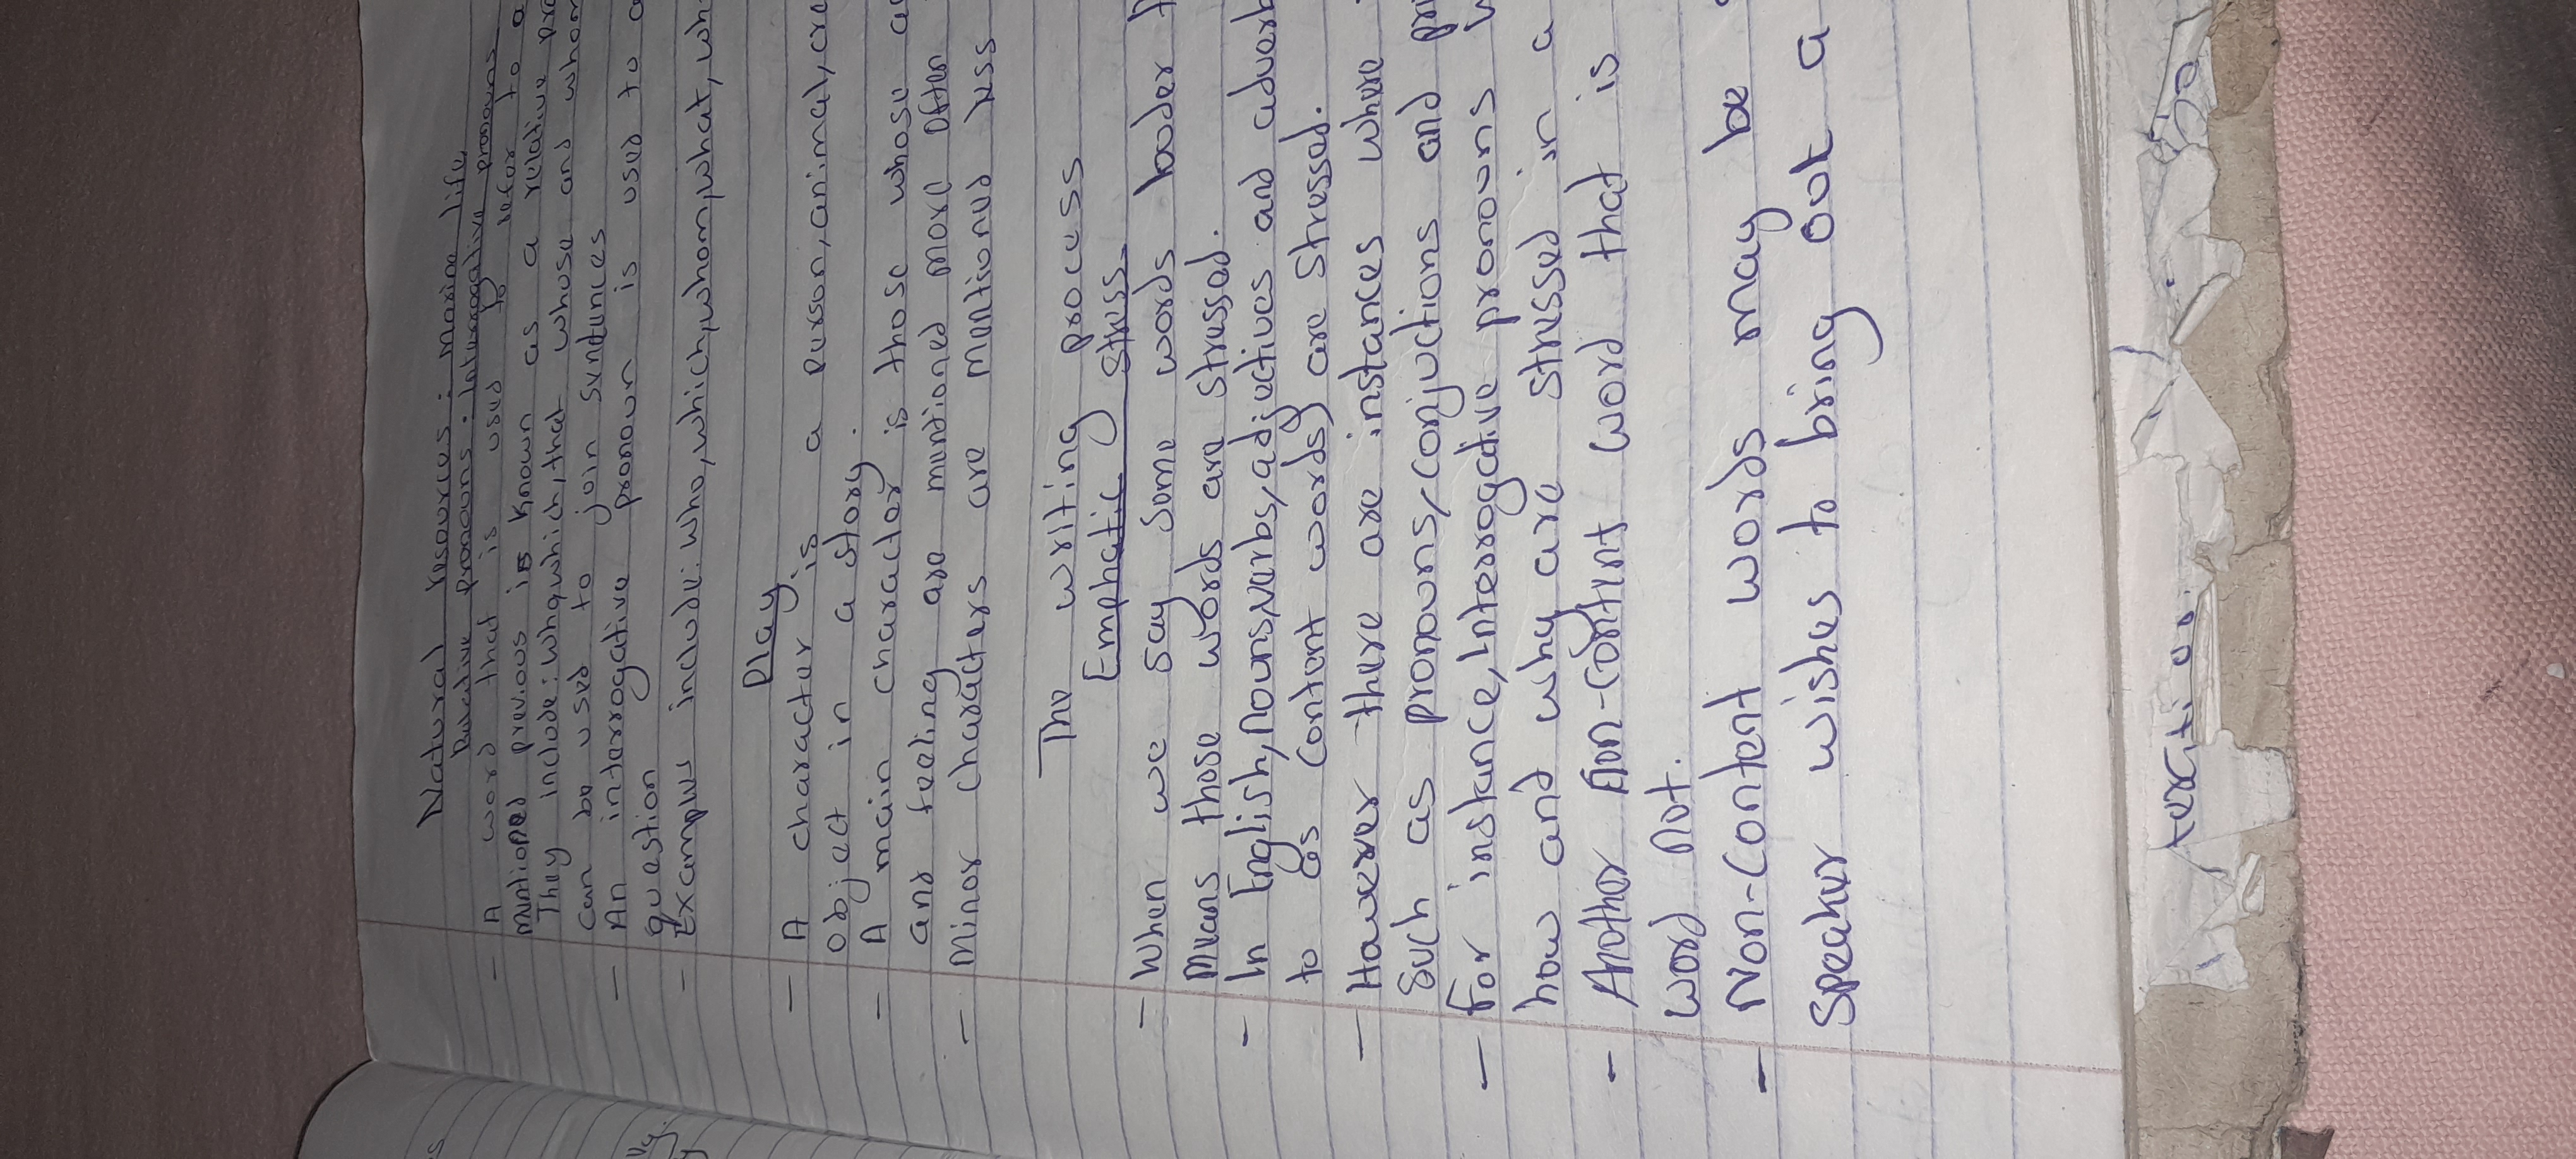 Natural resources: Marine life
Relative pronouns: interrogative pronouns
- A word that is used to refer to a
mentioned previous is known as a relative pro
They include: who, which, that whose and whom
can be used to join sentences
- An interrogative pronoun is used to a
question
- Examples include: who, which, whom, what, wh
Play.
- A character is a person, animal, cre
object in a story.
- A main character is those whose a
and feeling are mentioned more often
- Minor characters are mentioned less
The writing process
Emphatic stress.
- When we say some words louder t
Means those words are stressed.
- In English, nouns, verbs, adjectives and adverb
to as content words) are stressed.
- However there are instances where
such as pronouns, conjuctions and pr
- For instance, interrogative pronouns w
how and why are stressed in a
- Another non-content word that is
word not.
- Non-content words may be
speaker wishes to bring out a